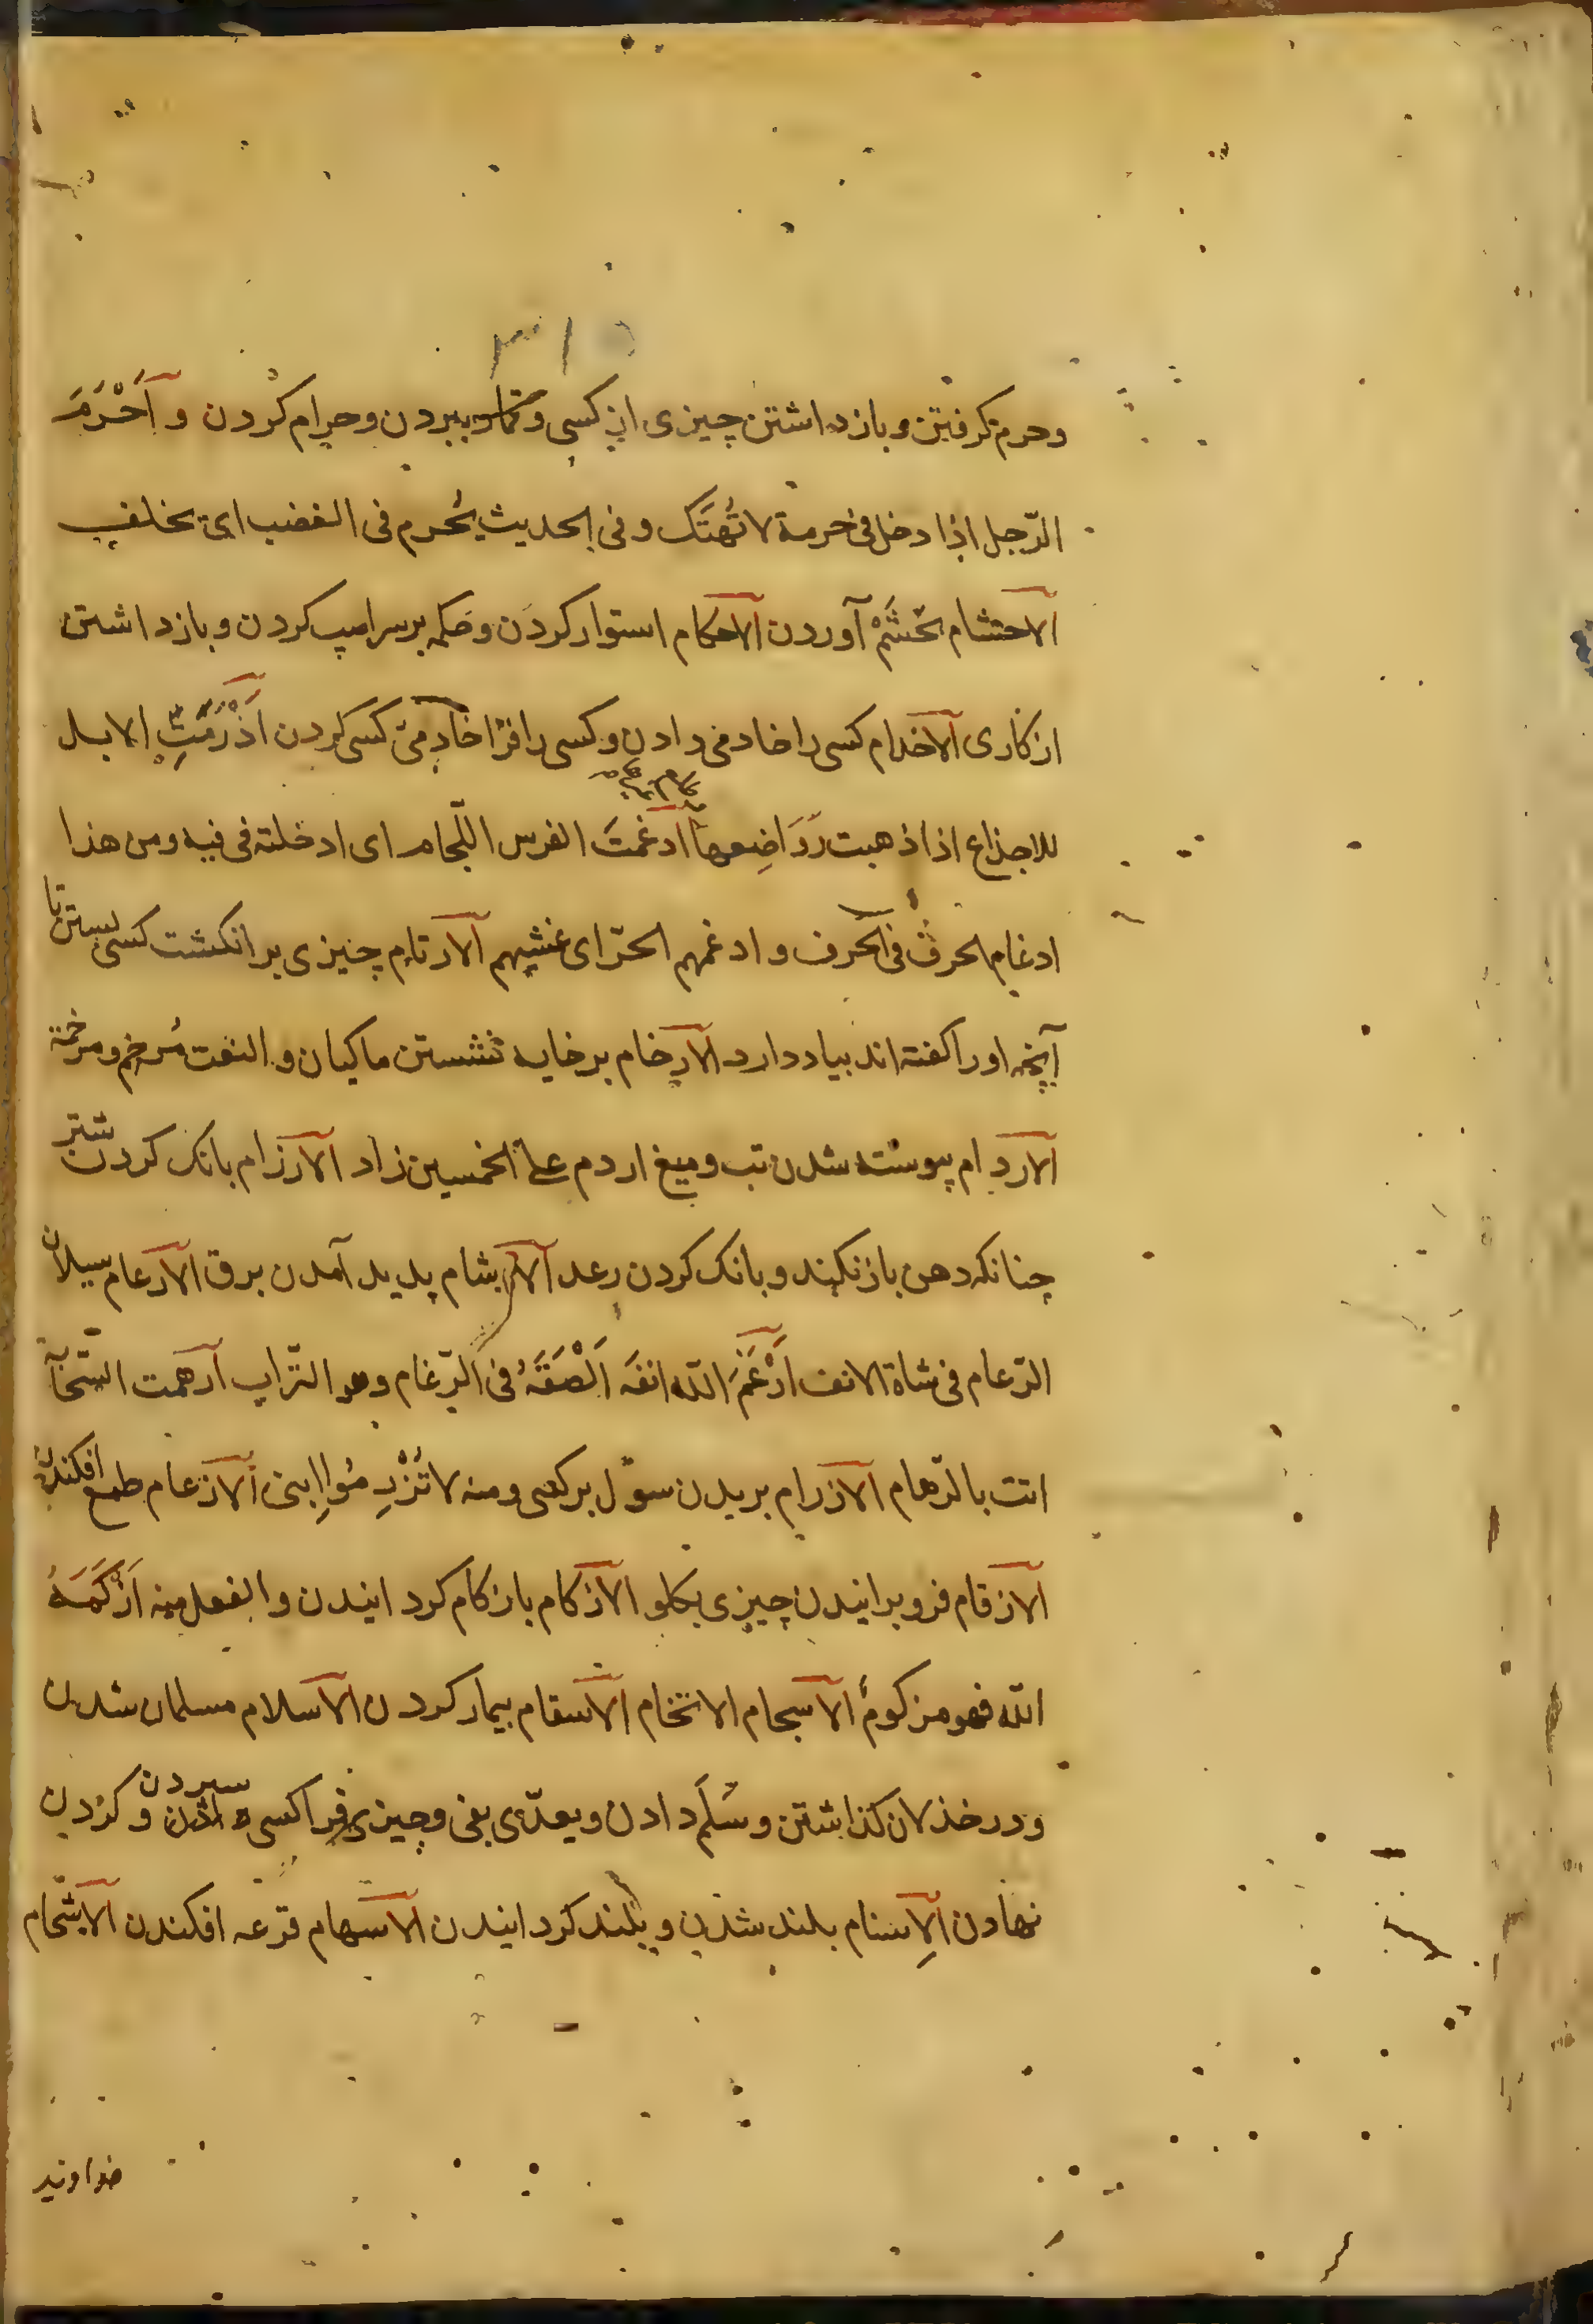 ۳۱۵
وحرم کرفتن و بازداشتن چیزی از کسی و ببردن وحرام کردن و اَحْرَمَ
الرّجل اذا دخل فی حرمة لا تُهتَک و فی الحدیث یُحرم فی الغضب ای یخلف
الاحتشام بحَشَمْ آوردن الاحکام استوار کردن و حکمه بر سر اسپ کردن و بازداشتن
از کاری الاخدام کسی را خادمی دادن و کسی را فرا خادمیّ کسی کردن اَذْرَمَتِ الابل
للاجذاع اذا ذهبت رَوَاضِعها ادغمتَ الفرس اللّجام ای ادخلته فی فیه ومن هذا
ادغام الحرف فی الحرف و ادغمهم الحرّ ای غشیهم الارتام چیزی بر انکشت کسی بستن تا
آنچه او را کفته اند بیاد دارد الارخام بر خایه نشستن ماکیان و النعت مُرخم و مرخمة
الاردام پیوسته شدن تب و میغ اردم علی الخمسین زاد الارزام بانک کردن شتر
چنانکه دهن باز نکند و بانک کردن رعد الارشام پدید آمدن برق الارعام سیلان
الرّعام فی شاة الانف اَرْغَمَ الله انفَه اَلْصَقَهُ فی الرّغام وهو التّراب ارهمت السّحابة
اتت بالرّهام الازرام بریدن بول بر کسی ومنه لا تُزْرِمُوا ابنی الازعام طمع افکندن
الازقام فرو برانیدن چیزی بکلو الازکام باز کام کردانیدن و الفعل منه اَزْکَمَهُ
الله فهو مزکومٌ الاسجام الانتخام الاسقام بیمار کردن الاسلام مسلمان شدن
و در خذلان کذاشتن و سَلَم دادن و یعدّی بفی و چیزی فرا کسی سپردن و کردن
نهادن الاِسنام بلند شدن و بلند کردانیدن الاسهام قرعه افکندن الاشحام
خداوند